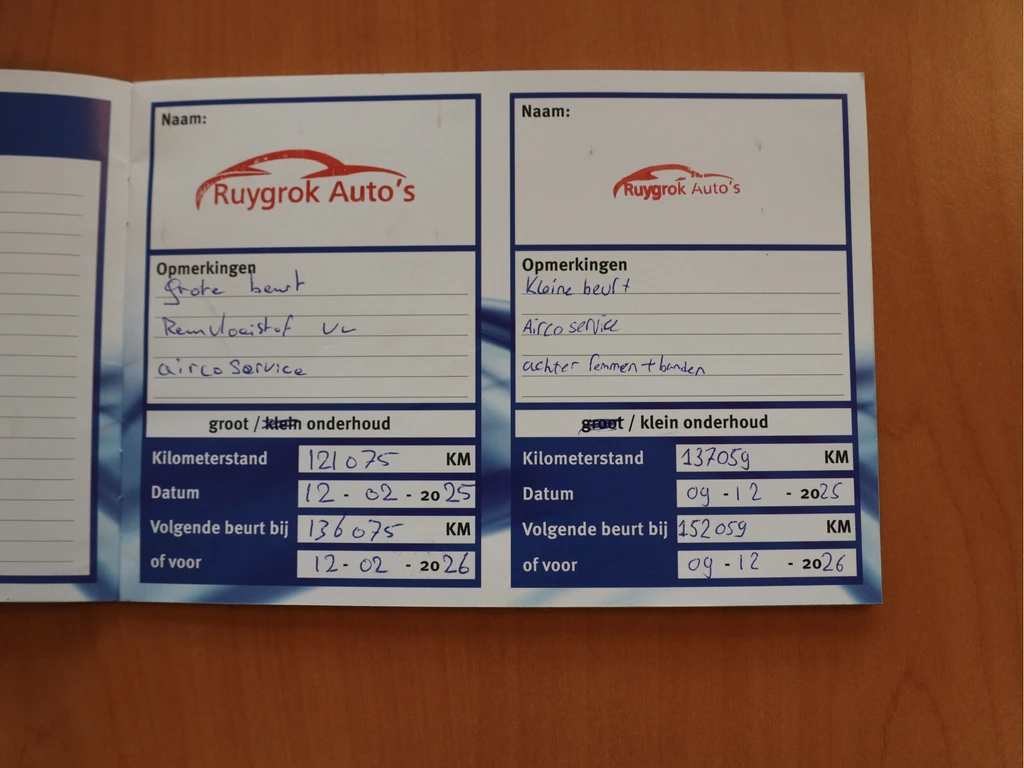 Naam:
Ruygrok Auto's
Opmerkingen
grote beurt
Remvloeistof vv
airco service
groot / klein onderhoud
Kilometerstand 121075 KM
Datum 12 - 02 - 2025
Volgende beurt bij 136075 KM
of voor 12 - 02 - 2026
Naam:
Ruygrok Auto's
Opmerkingen
Kleine beurt
Airco service
achter remmen + banden
groot / klein onderhoud
Kilometerstand 137059 KM
Datum 09 - 12 - 2025
Volgende beurt bij 152059 KM
of voor 09 - 12 - 2026